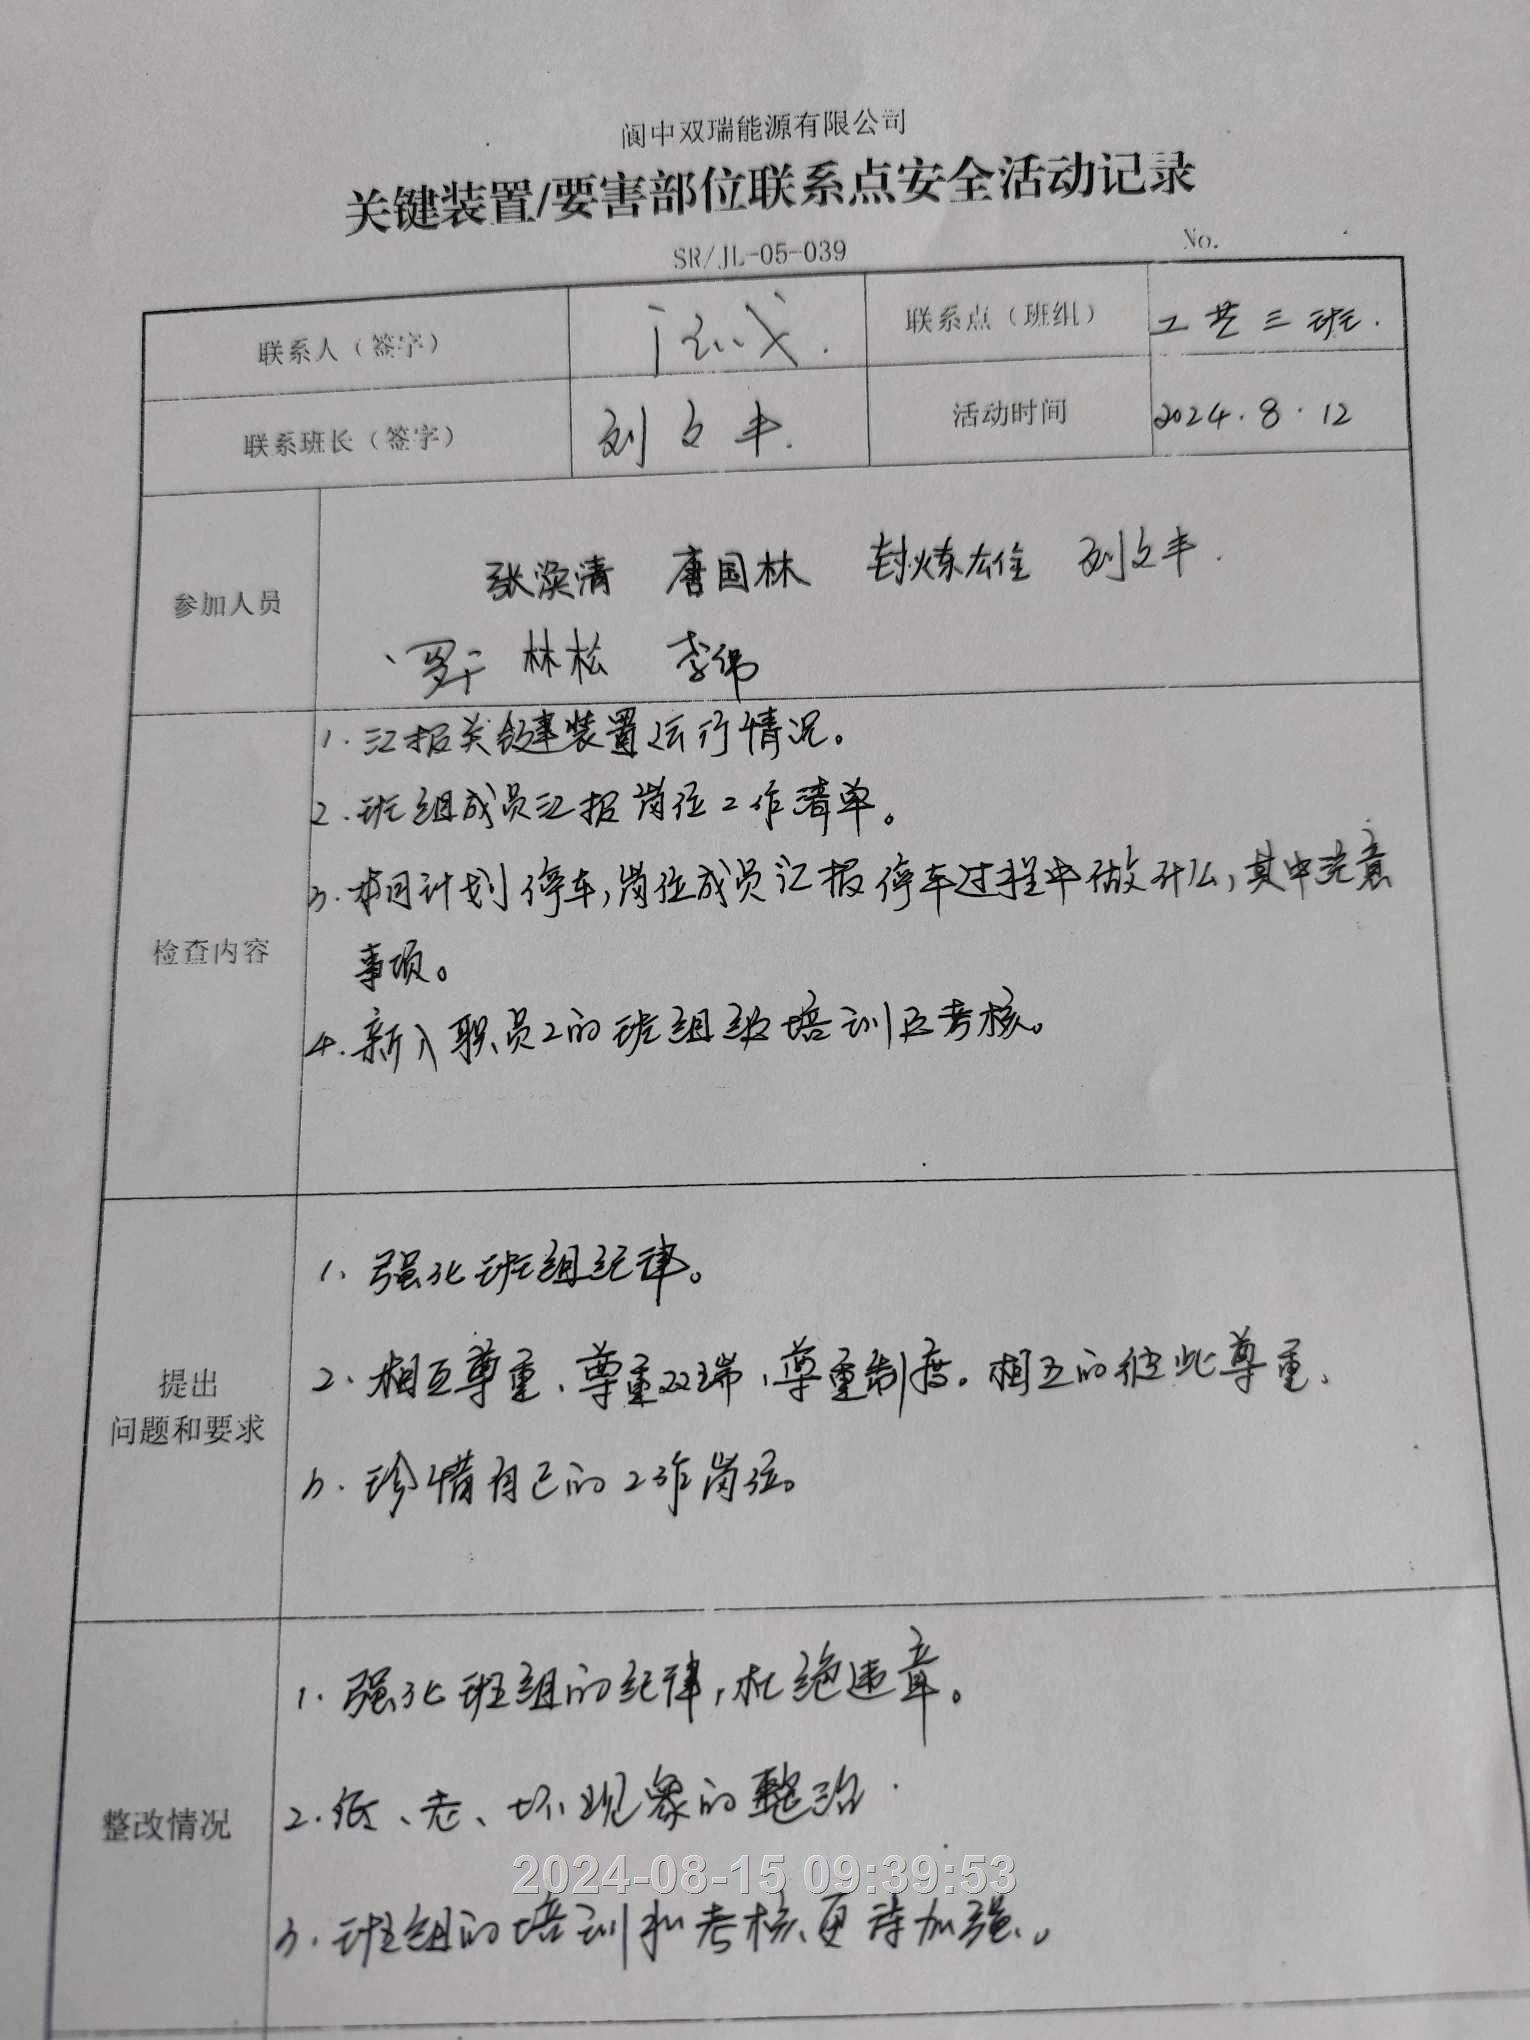 阆中双瑞能源有限公司
关键装置/要害部位联系点安全活动记录
SR/JL-05-039
No.
联系人（签字）
联系点（班组） 工艺三班.
联系班长（签字） 刘文丰.
活动时间 2024.8.12
参加人员
张焕清 唐国林 封炼雄 刘文丰.
罗干 林松 李伟
检查内容
1.汇报关键装置运行情况。
2.班组成员汇报岗位工作清单。
3.本月计划停车,岗位成员汇报停车过程中做什么,其中注意
事项。
4.新入职员工的班组级培训及考核。
提出
问题和要求
1、强化班组纪律。
2、相互尊重、尊重双瑞、尊重制度。相互的彼此尊重、
3.珍惜自己的工作岗位。
整改情况
1.强化班组的纪律,杜绝违章。
2.低、老、坏现象的整治.
2024-08-15 09:39:53
3.班组的培训和考核更待加强。